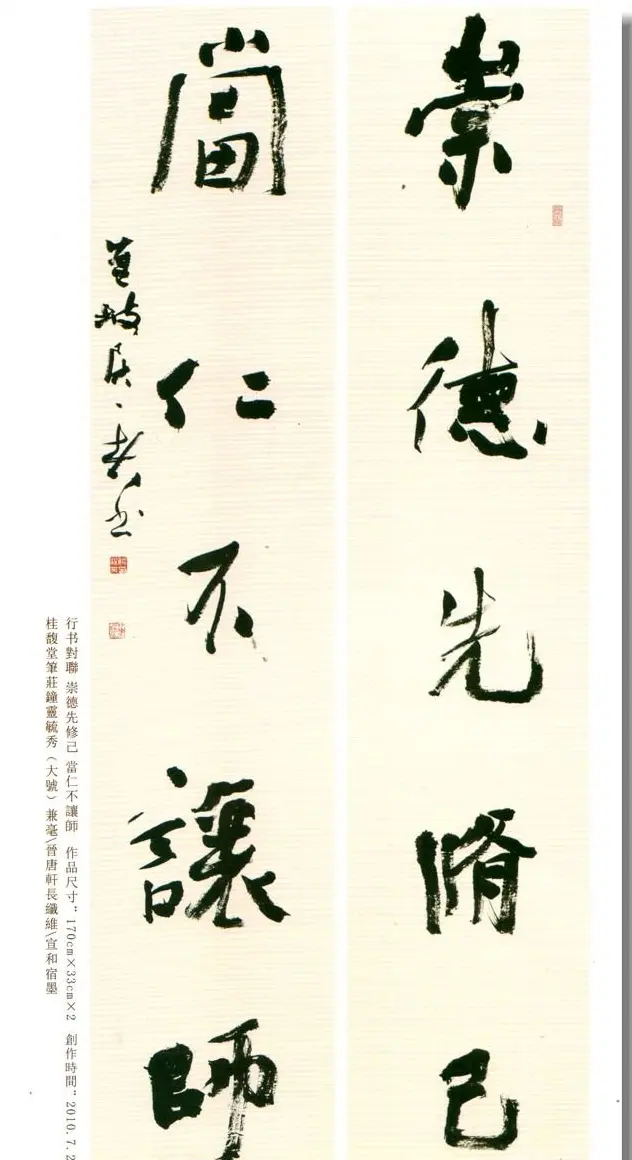 崇德先脩己
當仁不讓師
行书對聯 崇德先修己 當仁不讓師 作品尺寸：170cm×33cm×2 創作時間：2010.7.2
桂馥堂筆莊鐘靈毓秀（大號）兼毫\晉唐軒長纖維\宣和宿墨